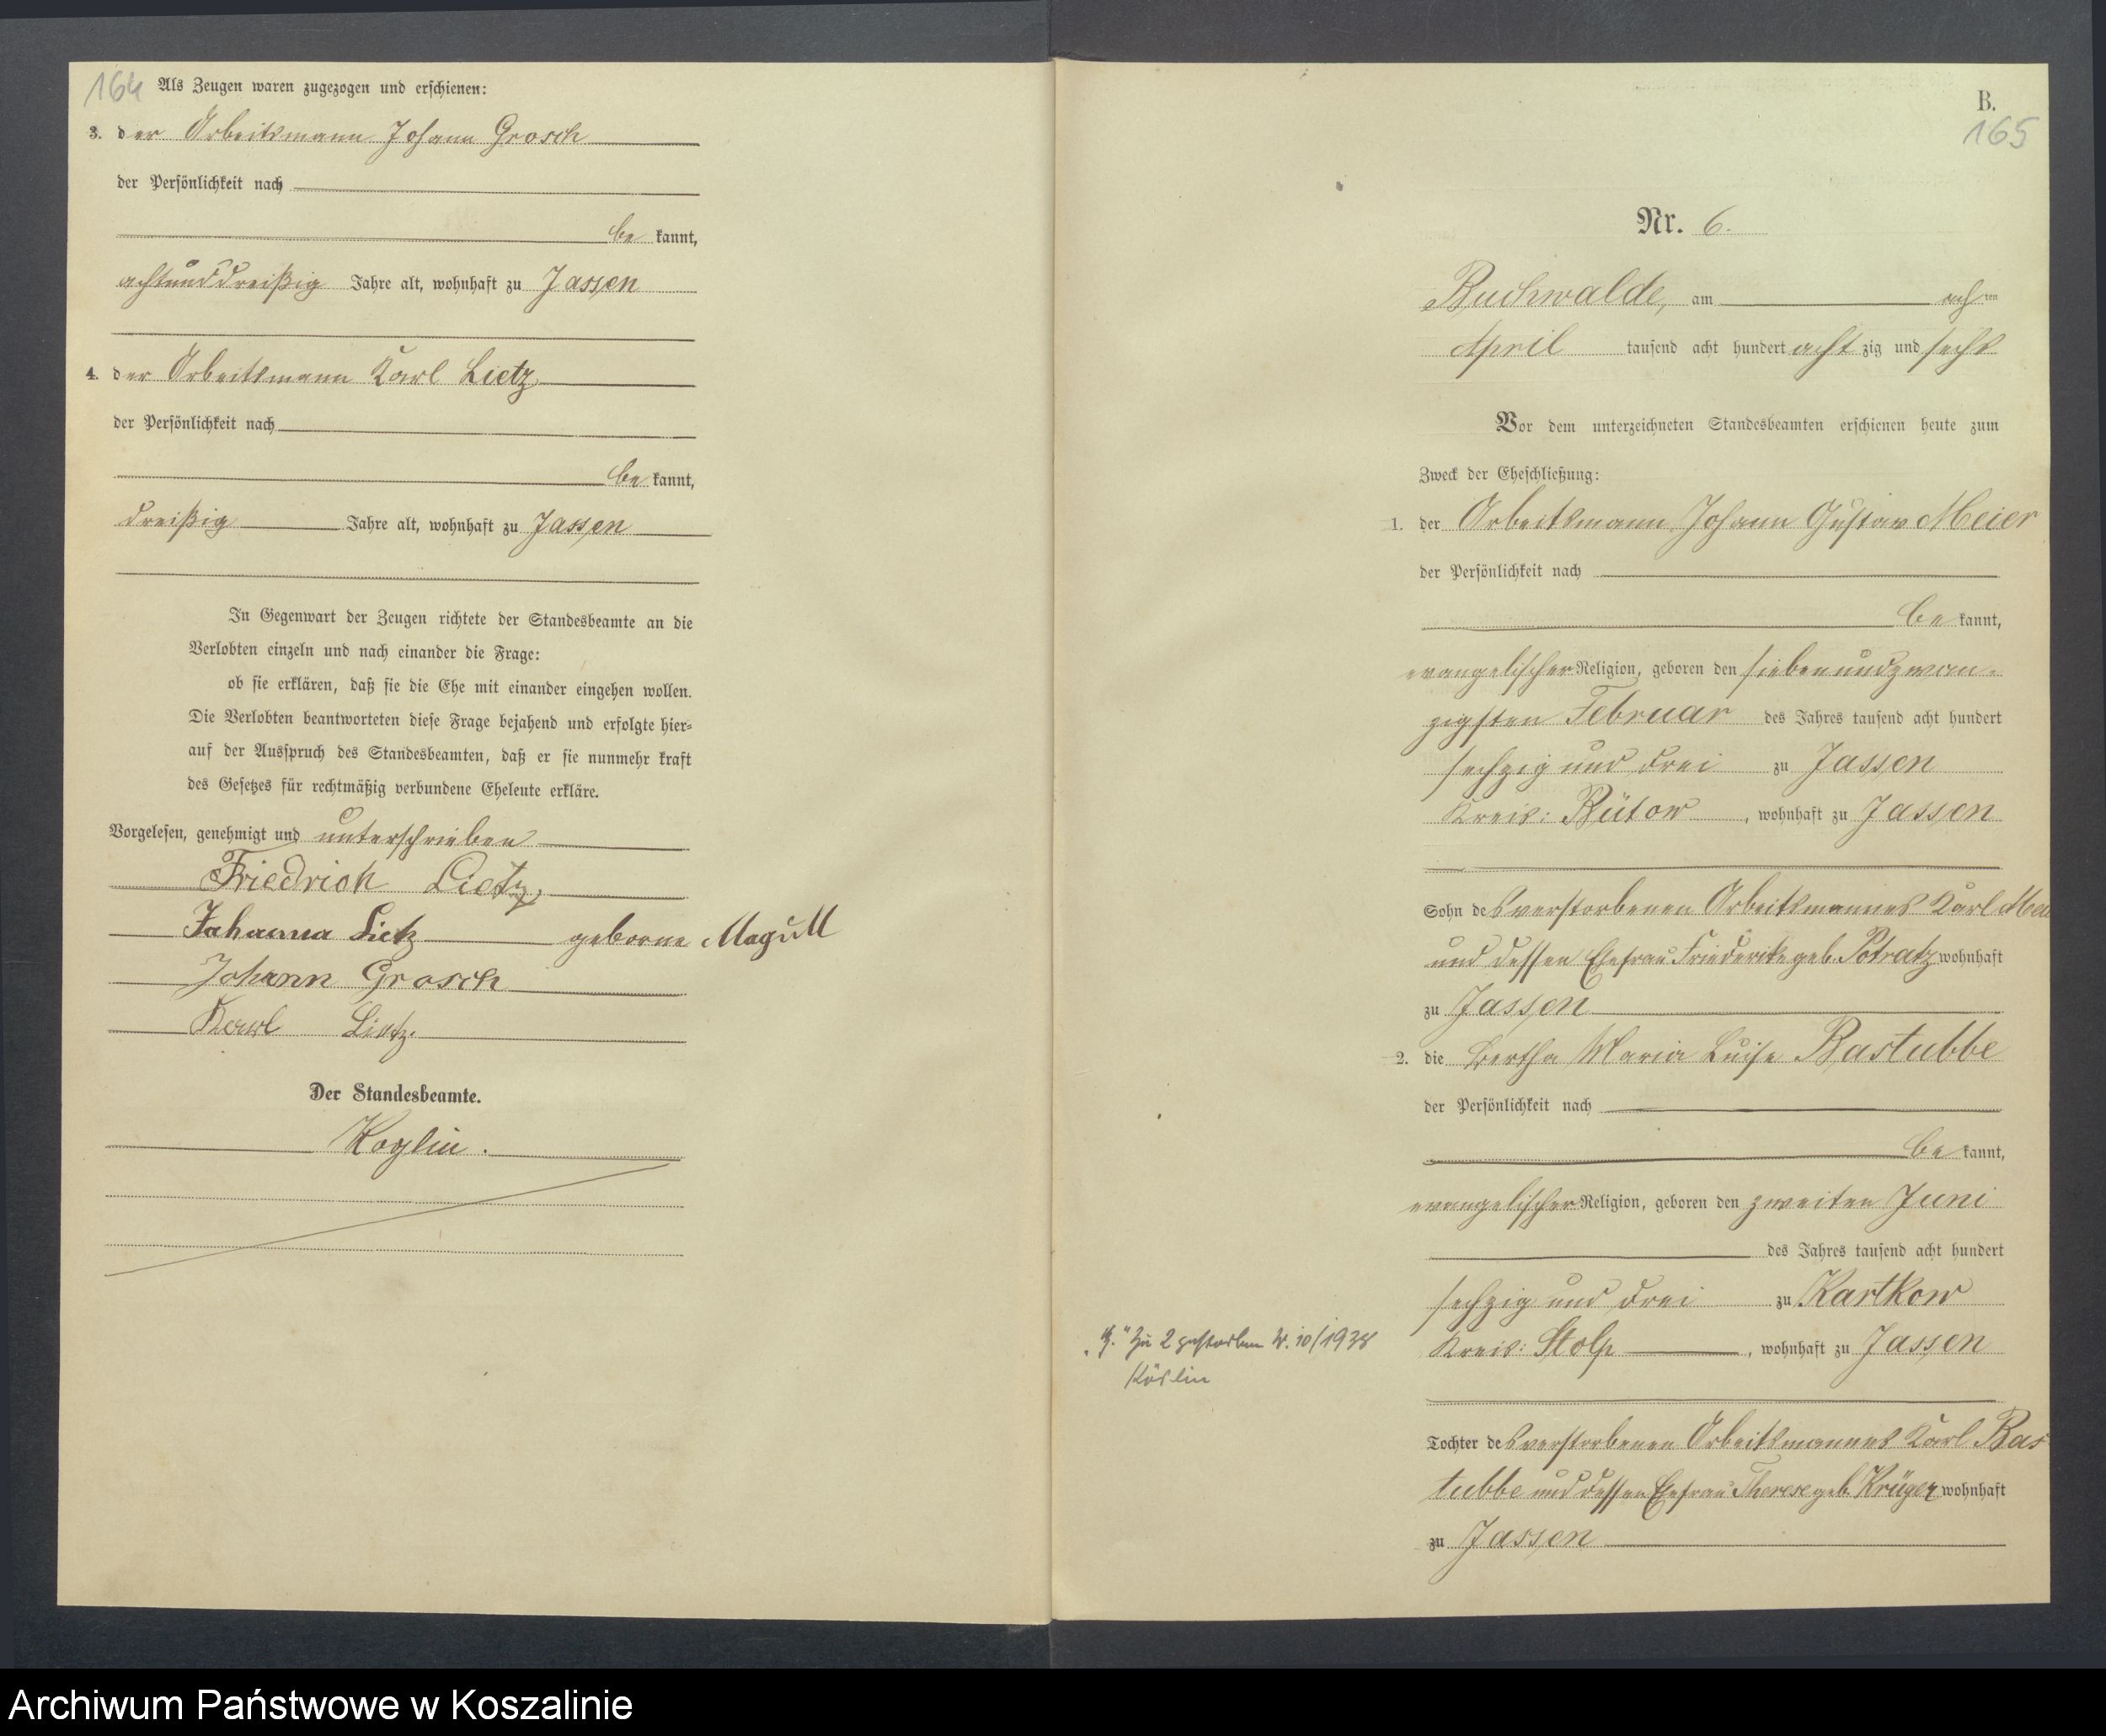 164
Als Zeugen waren zugezogen und erschienen:
3. der Arbeitsmann Johann Grosch
der Persönlichkeit nach
be kannt,
achtunddreißig Jahre alt, wohnhaft zu Jassen
4. der Arbeitsmann Karl Lietz
der Persönlichkeit nach
be kannt,
dreißig Jahre alt, wohnhaft zu Jassen
In Gegenwart der Zeugen richtete der Standesbeamte an die
Verlobten einzeln und nach einander die Frage:
ob sie erklären, daß sie die Ehe mit einander eingehen wollen.
Die Verlobten beantworteten diese Frage bejahend und erfolgte hier-
auf der Ausspruch des Standesbeamten, daß er sie nunmehr kraft
des Gesetzes für rechtmäßig verbundene Eheleute erkläre.
Vorgelesen, genehmigt und unterschrieben
Friedrich Lietz,
Johanna Lietz geborne Magull
Johann Grosch
Karl Lietz.
Der Standesbeamte.
Koglin.
B.
165
Nr. 6.
Buchwalde, am ach ten
April tausend acht hundert acht zig und sechs
Vor dem unterzeichneten Standesbeamten erschienen heute zum
Zweck der Eheschließung:
1. der Arbeitsmann Johann Gustav Meier
der Persönlichkeit nach
be kannt,
evangelischer Religion, geboren den siebenundzwan-
zigsten Februar des Jahres tausend acht hundert
sechzig und drei zu Jassen
Kreis: Bütow, wohnhaft zu Jassen
Sohn des verstorbenen Arbeitsmannes Karl Mei
und dessen Ehefrau Friederike geb. Potratz wohnhaft
zu Jassen
2. die Bertha Maria Luise Bastubbe
der Persönlichkeit nach
be kannt,
evangelischer Religion, geboren den zweiten Juni
des Jahres tausend acht hundert
sechzig und drei zu Kartkow
Kreis: Stolp, wohnhaft zu Jassen
Tochter des verstorbenen Arbeitsmannes Karl Bas
tubbe und dessen Ehefrau Therese geb. Krüger wohnhaft
zu Jassen
Zu 2 gestorben Nr. 10/1938
Köslin
Archiwum Państwowe w Koszalinie